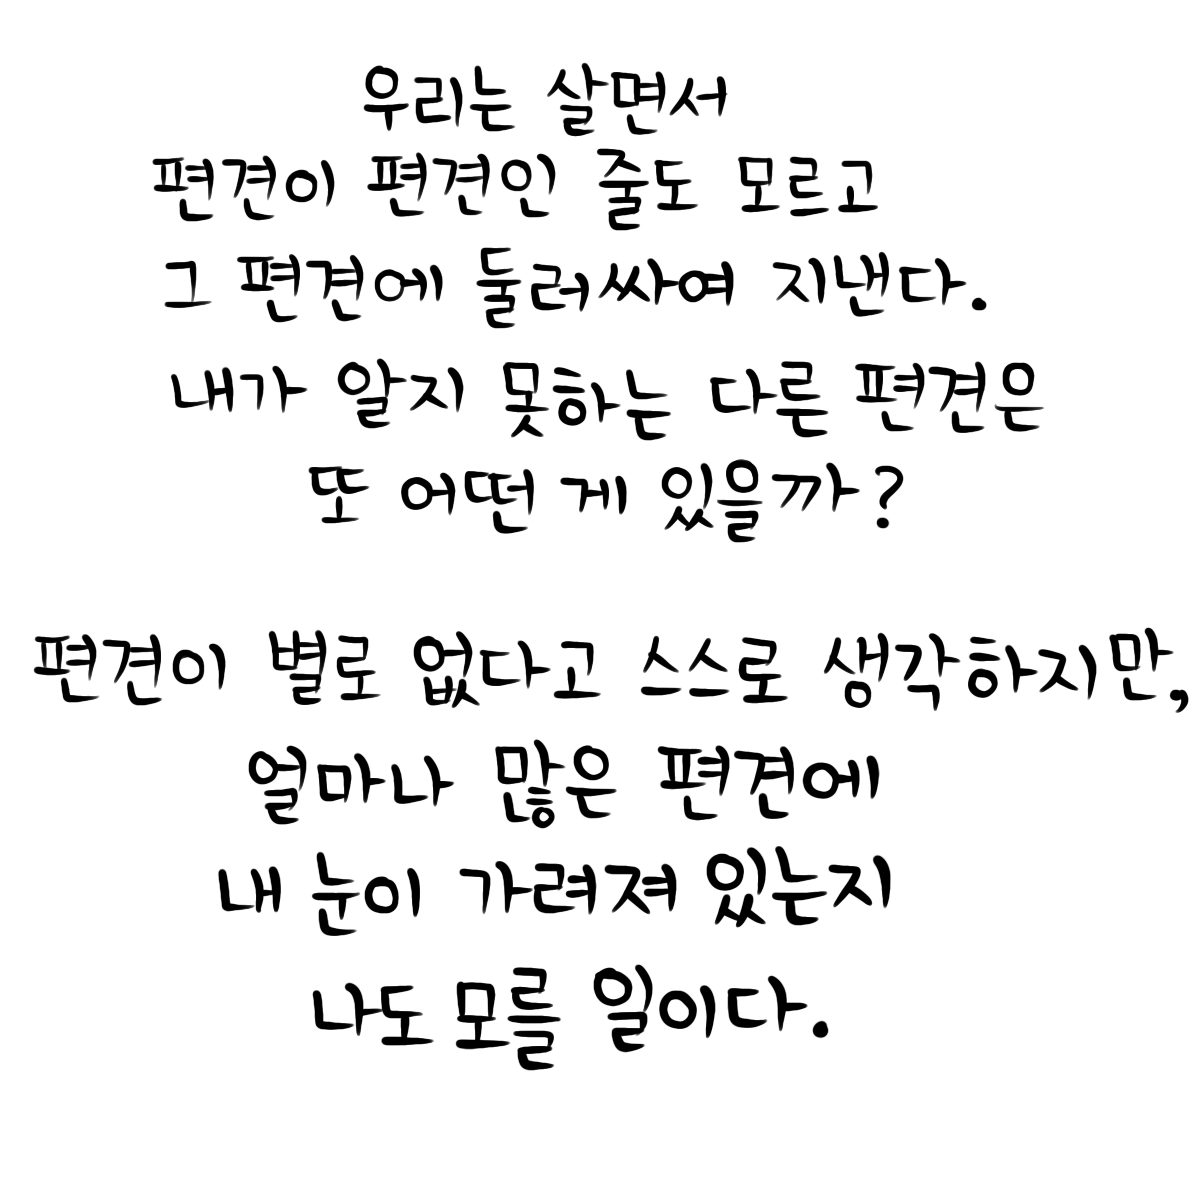 우리는 살면서
편견이 편견인 줄도 모르고
그 편견에 둘러싸여 지낸다.
내가 알지 못하는 다른 편견은
또 어떤 게 있을까?
편견이 별로 없다고 스스로 생각하지만,
얼마나 많은 편견에
내 눈이 가려져 있는지
나도 모를 일이다.